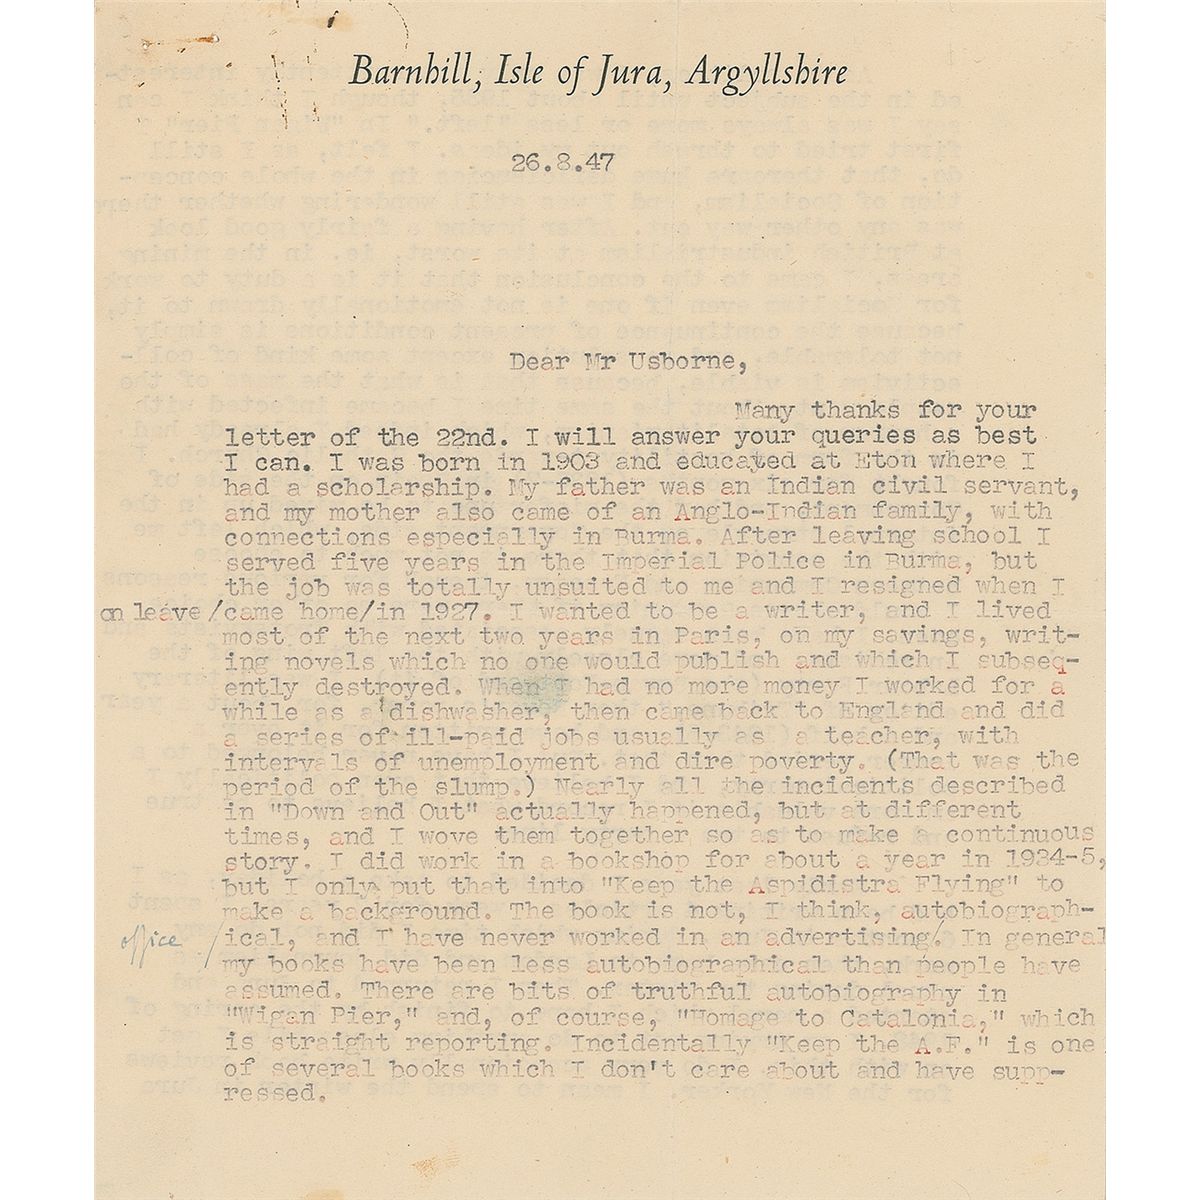 Barnhill, Isle of Jura, Argyllshire
26.8.47
Dear Mr Usborne,
Many thanks for your
letter of the 22nd. I will answer your queries as best
I can. I was born in 1903 and educated at Eton where I
had a scholarship. My father was an Indian civil servant,
and my mother also came of an Anglo-Indian family, with
connections especially in Burma. After leaving school I
served five years in the Imperial Police in Burma, but
the job was totally unsuited to me and I resigned when I
on leave/came home/in 1927. I wanted to be a writer, and I lived
most of the next two years in Paris, on my savings, writ-
ing novels which no one would publish and which I subseq-
ently destroyed. When I had no more money I worked for a
while as a dishwasher, then came back to England and did
a series of ill-paid jobs usually as a teacher, with
intervals of unemployment and dire poverty. (That was the
period of the slump.) Nearly all the incidents described
in "Down and Out" actually happened, but at different
times, and I wove them together so as to make a continuous
story. I did work in a bookshop for about a year in 1934-5,
but I only put that into "Keep the Aspidistra Flying" to
make a background. The book is not, I think, autobiograph-
office /ical, and I have never worked in an advertising. In general
my books have been less autobiographical than people have
assumed. There are bits of truthful autobiography in
"Wigan Pier," and, of course, "Homage to Catalonia," which
is straight reporting. Incidentally "Keep the A.F." is one
of several books which I don't care about and have supp-
ressed.